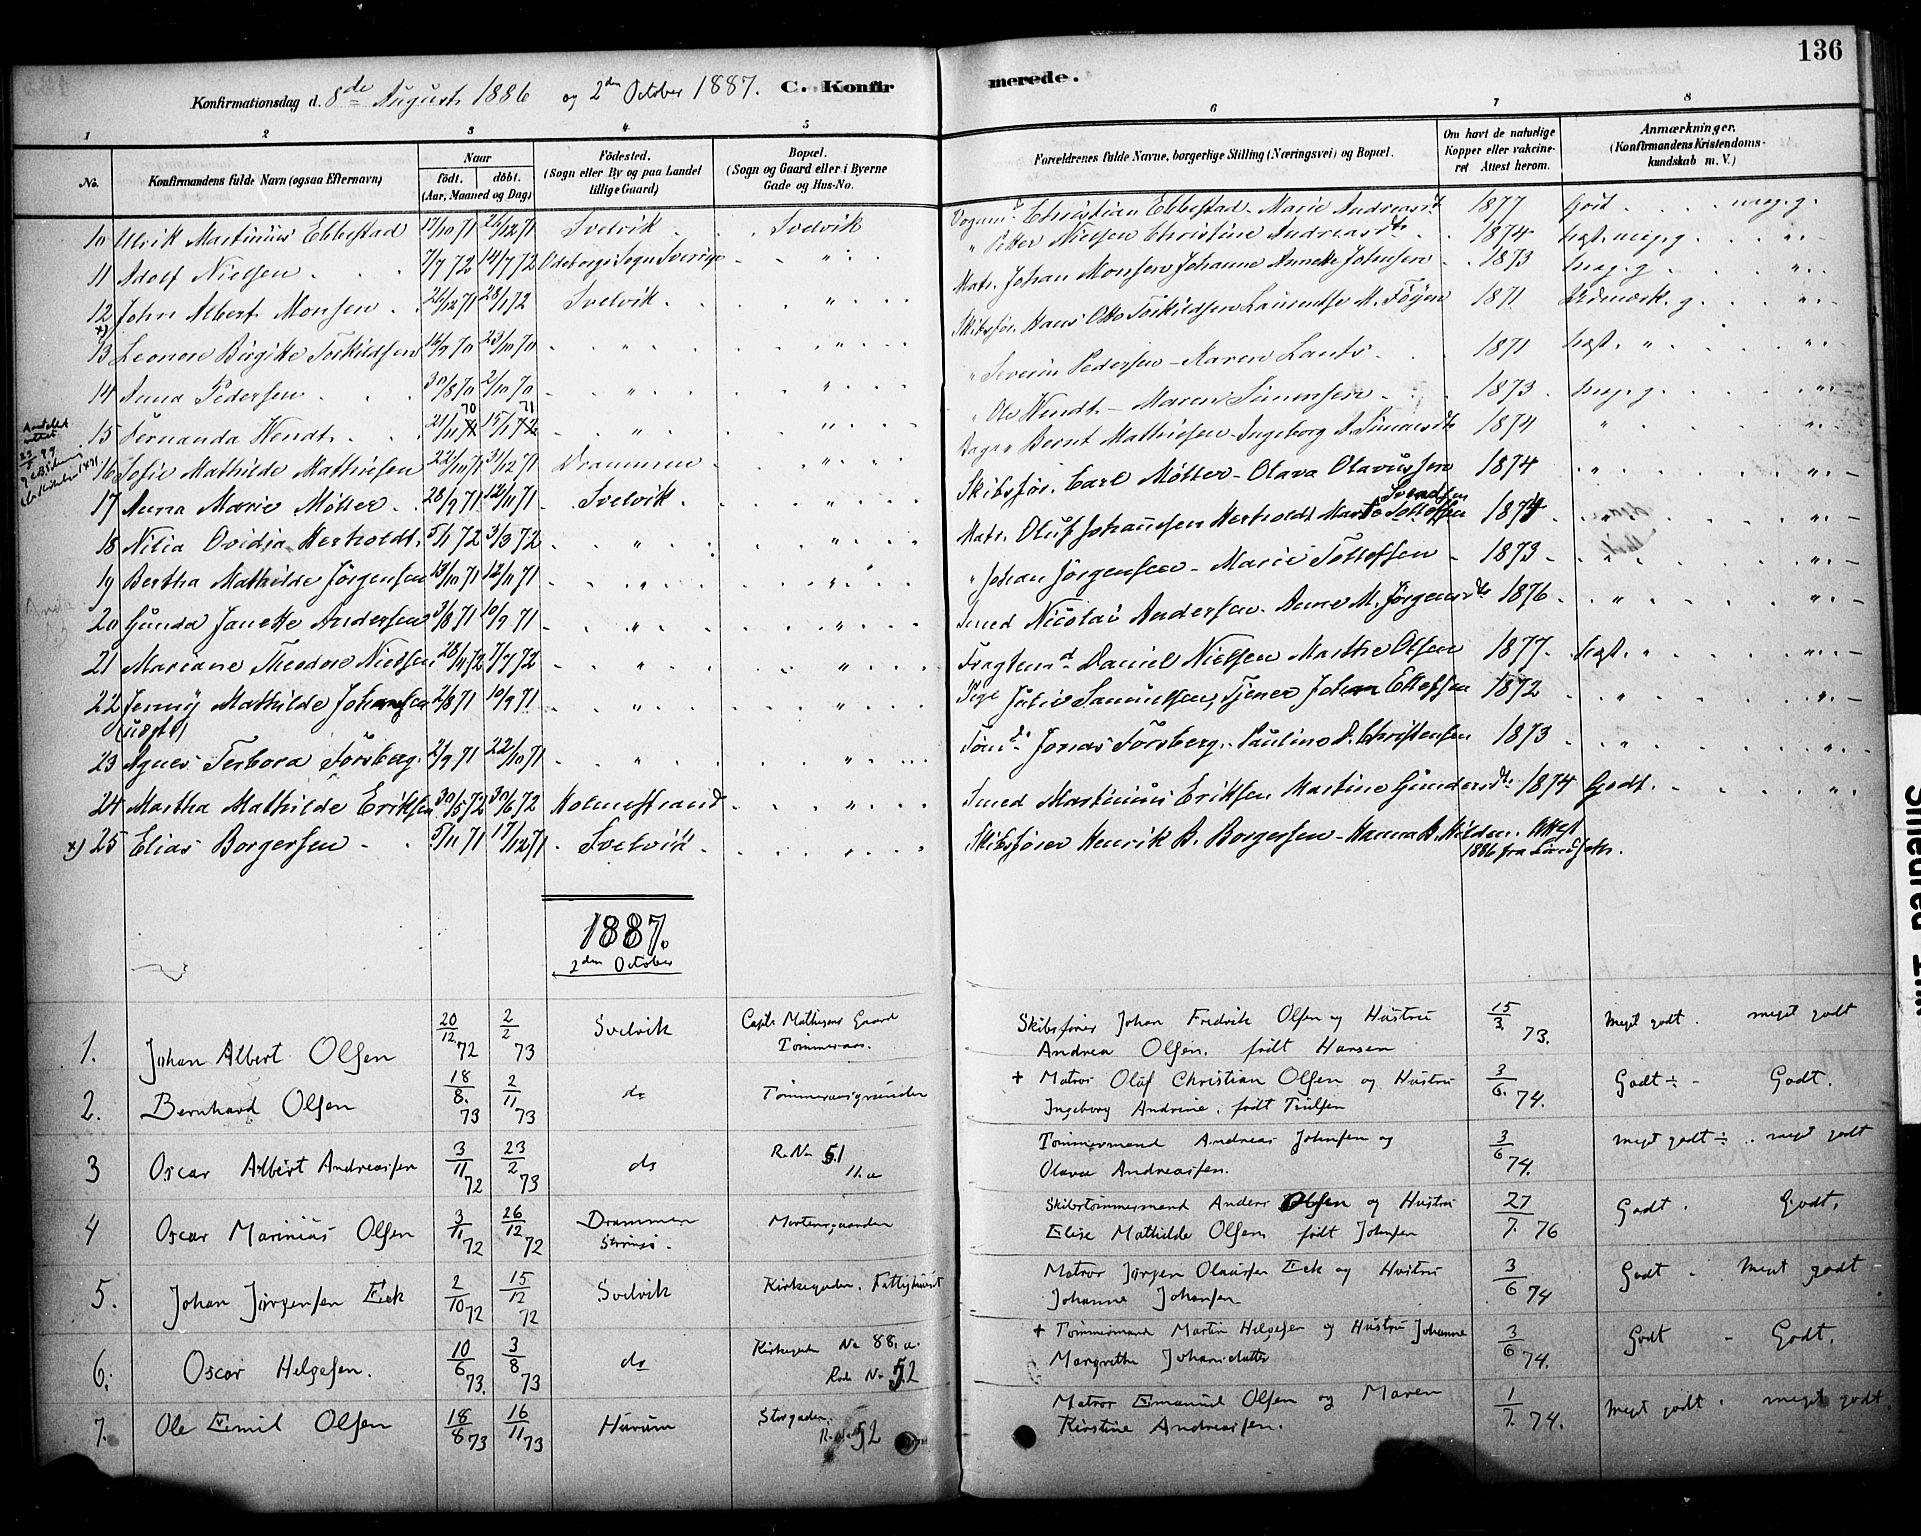 136
Konfirmationsdag d. 8de August 1886 og 2den October 1887. C. Konfirmerede.
1 2 3 4 5 6 7 8
No. Konfirmandens fulde Navn (ogsaa Efternavn) Naar født. døbt. (Aar, Maaned og Dag) Fødested. (Sogn eller By og paa Landet tillige Gaard) Bopæl. (Sogn og Gaard eller i Byerne Gade og Hus-No. Forældrenes fulde Navne, borgerlige Stilling (Næringsvei) og Bopæl. Om havt de naturlige Kopper eller vakcineret Attest herom. Anmærkninger. (Konfirmandens Kristendomskundskab m. V.)
10 Ulrik Martinius Ebbestad 17/10 71 26/12 71 Svelvik Svelvik Vogmd Christian Ebbestad - Marie Andreasdt 1877 Godt meg. g.
11 Adolf Nielsen 7/7 72 14/7 72 Odeborgs Sogn Sverige " " Petter Nielsen Christine Andreasdtr 1874 Næst. meg. g. " -
12 John Albert Monsen 26/12 71 28/1 72 Svelvik " Matr. Johan Monsen Johanne Annette Johnsen 1873 meg. g. " -
x) 13 Leonore Birgitte Torkildsen 16/9 70 23/10 70 " " Skibsfør. Hans Otto Torkildsen Laurentse M. Føyen 1871 Udmærk. g. " -
14 Anna Pedersen 30/8 70 2/10 70 " " " Severin Pedersen - Karen Lantz 1871 Næst. " " -
15 Fernanda Wendt 21/11 70 15/1 71 " " " Ole Wendt - Maren Simensen 1873 meg. g. " -
16 Sofie Mathilde Mathiesen 22/10 71 31/12 71 Drammen " Bernt Mathiesen - Ingeborg A. Simensdtr 1874 " " -
17 Anna Marie Møller 28/9 71 12/11 71 Svelvik " Skibsfør. Carl Møller - Olava Olavussen 1874 " " -
18 Nilia Ovidia Herholdt 5/1 72 3/3 72 " " Matr. Oluf Johansen Herholdt Marte Tollefsen Svendsen 1874 " " -
19 Bertha Mathilde Jørgensen 12/11 71 " " " Johan Jørgensen - Marie Tollefsen 1873 " " -
20 Gunda Janette Andersen 3/8 71 10/9 71 " " Smed Nicolai Andersen. Anne M. Jørgensdtr 1876 " " -
21 Mariane Theodore Nielsen 28/4 72 7/7 72 " " Fragtemd Daniel Nielsen Marthe Olsen 1877 Næst. " " -
22 Jenny Mathilde Johansen 2/8 71 10/9 71 " " Pige Julie Samuelsen, Tjener Johan Ellefsen 1872 " " -
(uægte)
23 Agnes Terbora Forsberg 2/9 71 22/10 71 " " Tømd. Jonas Forsberg. Pauline D. Christensen 1873 " " -
24 Martha Mathilde Eriksen 30/5 72 30/6 72 Holmestrand " Smed Martinius Eriksen Martine Gundersdtr 1874 Godt. "
x) 25 Elias Borgersen 5/11 71 17/12 71 Svelvik " Skibsfører Henrik B. Borgersen - Hanna B. Attest
1886 fra
1887.
2den October
1. Johan Albert Olsen 20/12 72 2/2 73 Svelvik Capt. Mathesens Gaard Tømmeraas. Skibsfører Johan Fredrik Olsen og Hustru Andrea Olsen, født Hansen 15/3 73. Meget godt. meget godt
2. Bernhard Olsen 18/8. 73 2/11 73 do Tømmeraasgrunden + Matros Oluf Christian Olsen og Hustru Ingeborg Andrine, født Trulsen 3/6. 74. Godt ÷ - Godt.
3 Oscar Albert Andreassen 3/11 72 23/2 73 do R. No 51 11.a Tømmermand Andreas Johnsen og Olava Andreassen. 3/6 74. meget godt ÷ .. meget godt
4 Oscar Marinius Olsen 3/11 72 26/12 72 Drammen Strømsø. Mortensgaarden Skibstømmermand Anders Olsen og Hustru Elise Mathilde Olsen, født Johnsen 27/7. 76 Godt. Godt.
5. Johan Jørgensen Eek 2/10 72 15/12 72 Svelvik Kirkegaden. Fattighuset Matros Jørgen Olaussen Eek og Hustru Johanne Johansen 3/6 74 Godt - Meget godt
6. Oscar Helgesen. 10/6 73. 3/8 73 do Kirkegaden No 88. a. Rode No 52 + Tømmermand Martin Helgesen og Hustru Johanne Margrethe Johansdatter 3/6 74. Godt - Godt.
7. Ole Emil Olsen 18/8 73 16/11 73 Hurum Storgaden. 52 Matros Emanuel Olsen og Maren Kirstine Andreassen. 1/7. 74. Meget godt. meget godt.